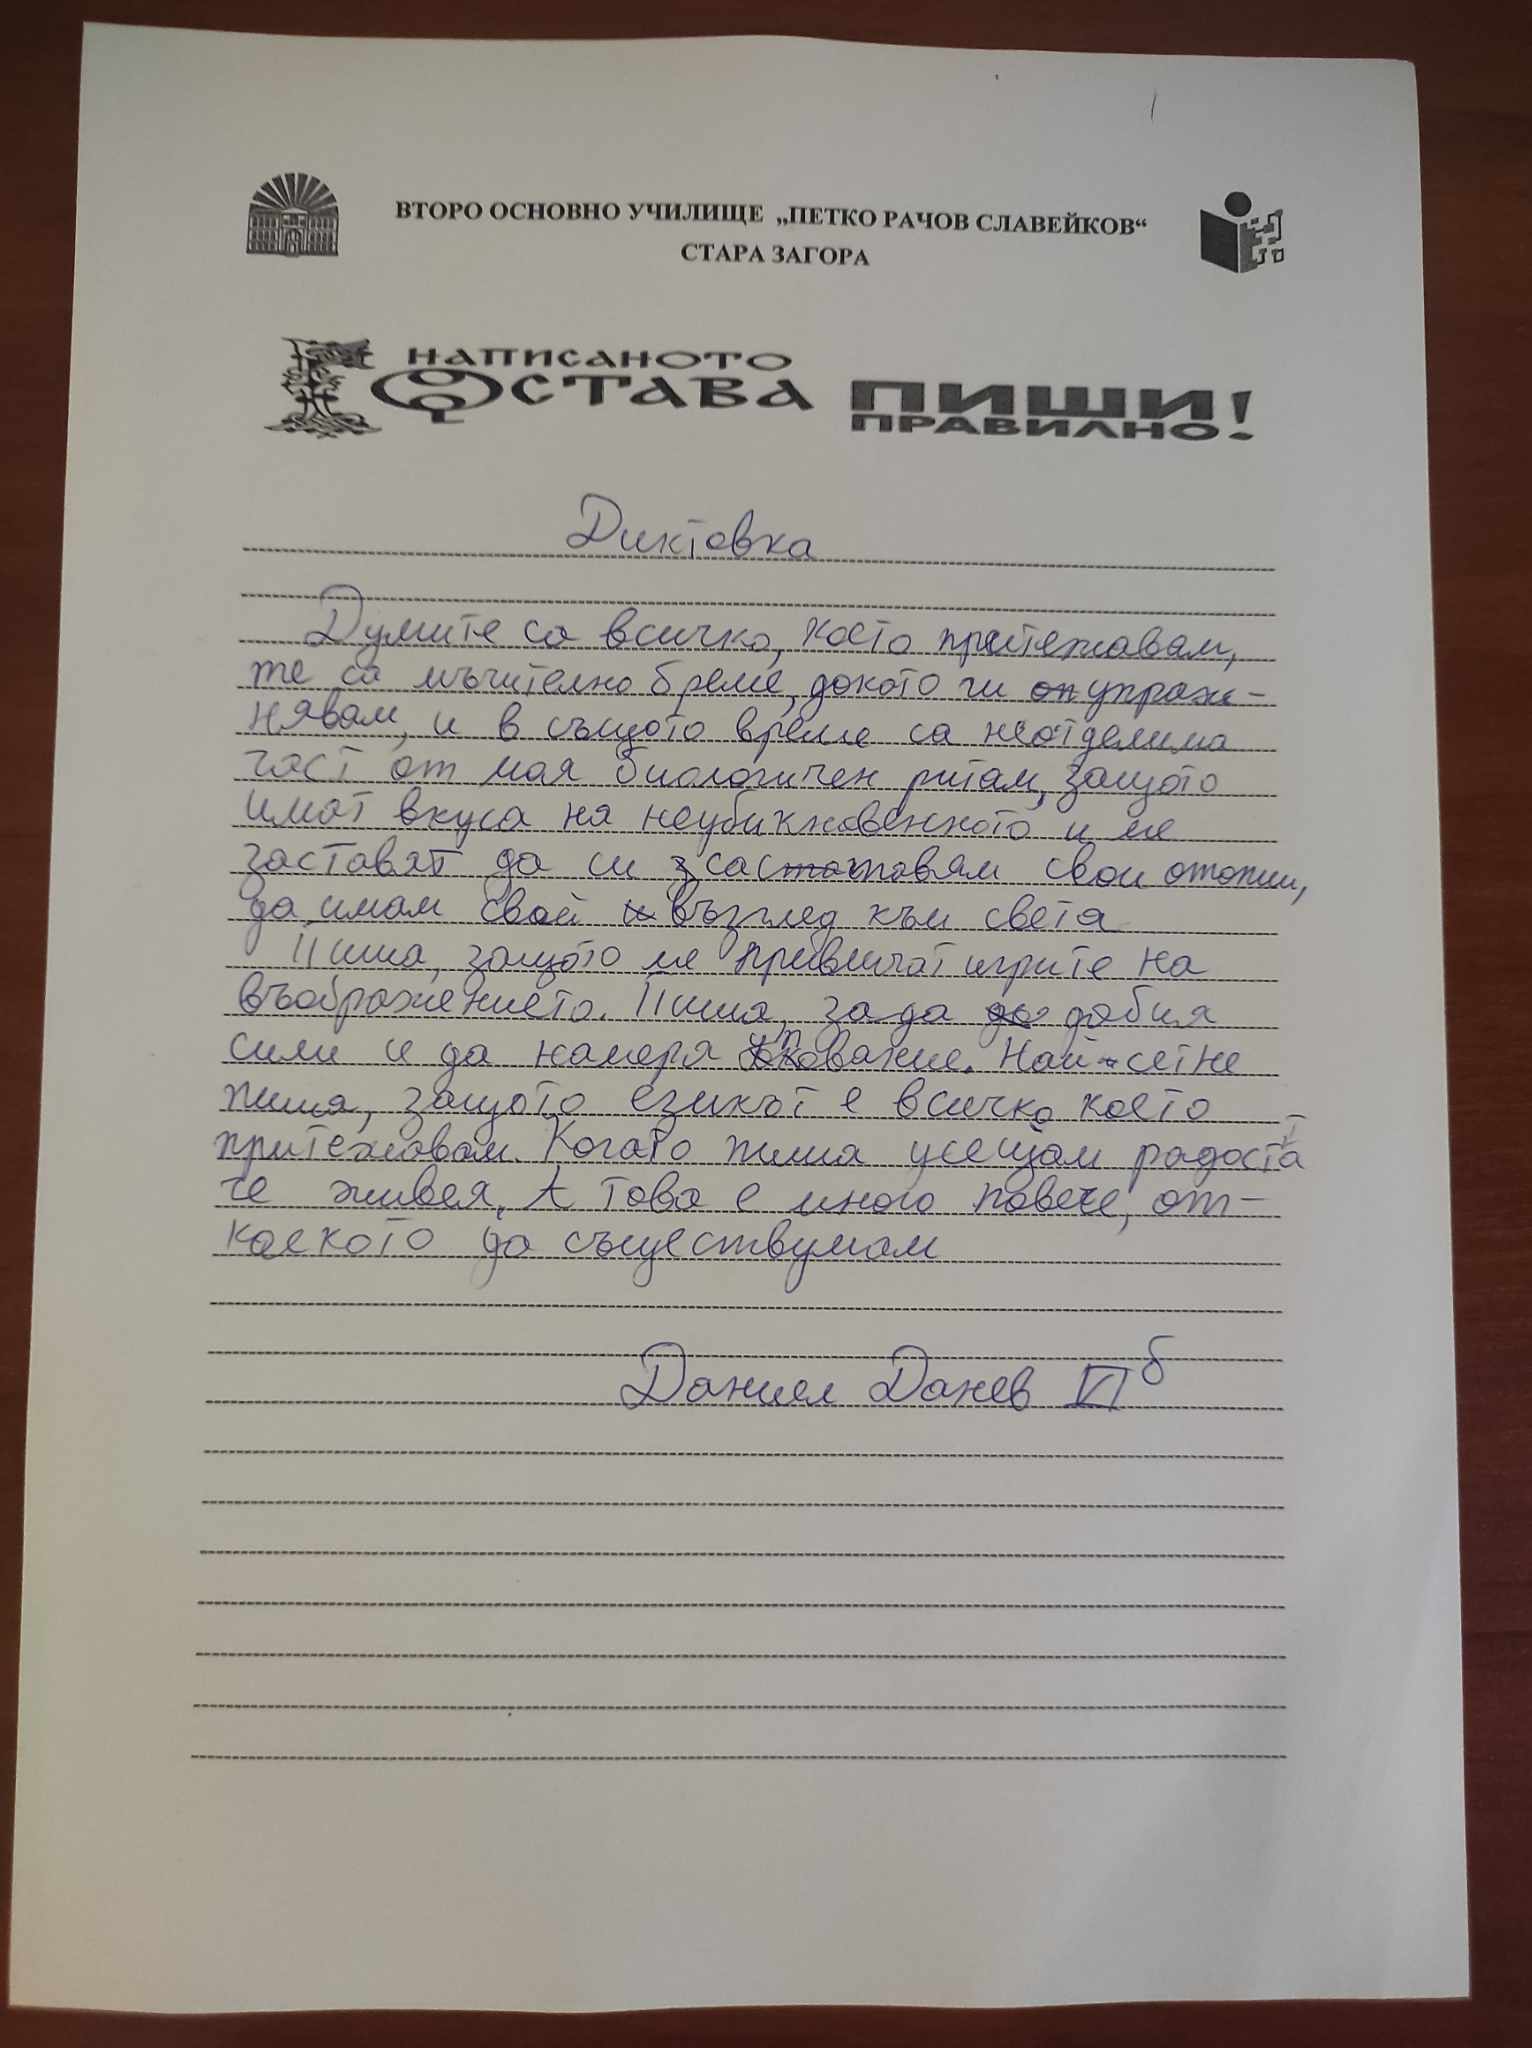 ВТОРО ОСНОВНО УЧИЛИЩЕ „ПЕТКО РАЧОВ СЛАВЕЙКОВ“
СТАРА ЗАГОРА
НАПИСАНОТО
ОСТАВА ПИШИ
ПРАВИЛНО!
Диктовка
Думите са всичко, което притежавам,
те са мъчително бреме, докато ги упраж-
нявам, и в същото време са неотделима
част от моя биологичен ритам, защото
имат вкуса на неубикновенното и ме
заставят да си съставям свои
да имам свой възглед към света
Пиша, защото ме привличат игрите на
въображението. Пиша, за да добия
сили и да намеря упование. Най-сетне
пиша, защото езикът е всичко което
притежавам. Когато пиша усещам радостта
че живея, А това е много повече, от-
колкото да съществумам
Даниел Данев VI б